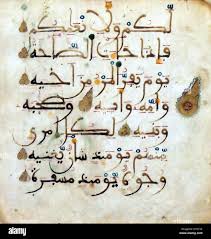 لكم ولانعمكم
فاذا جات الصاخة
يوم يفر المر من اخيه
وامه وابيه وصحبته
وبنيه لكل امرى
منهم يومئذ شان يغنيه
وجوه يومئذ مسفرة